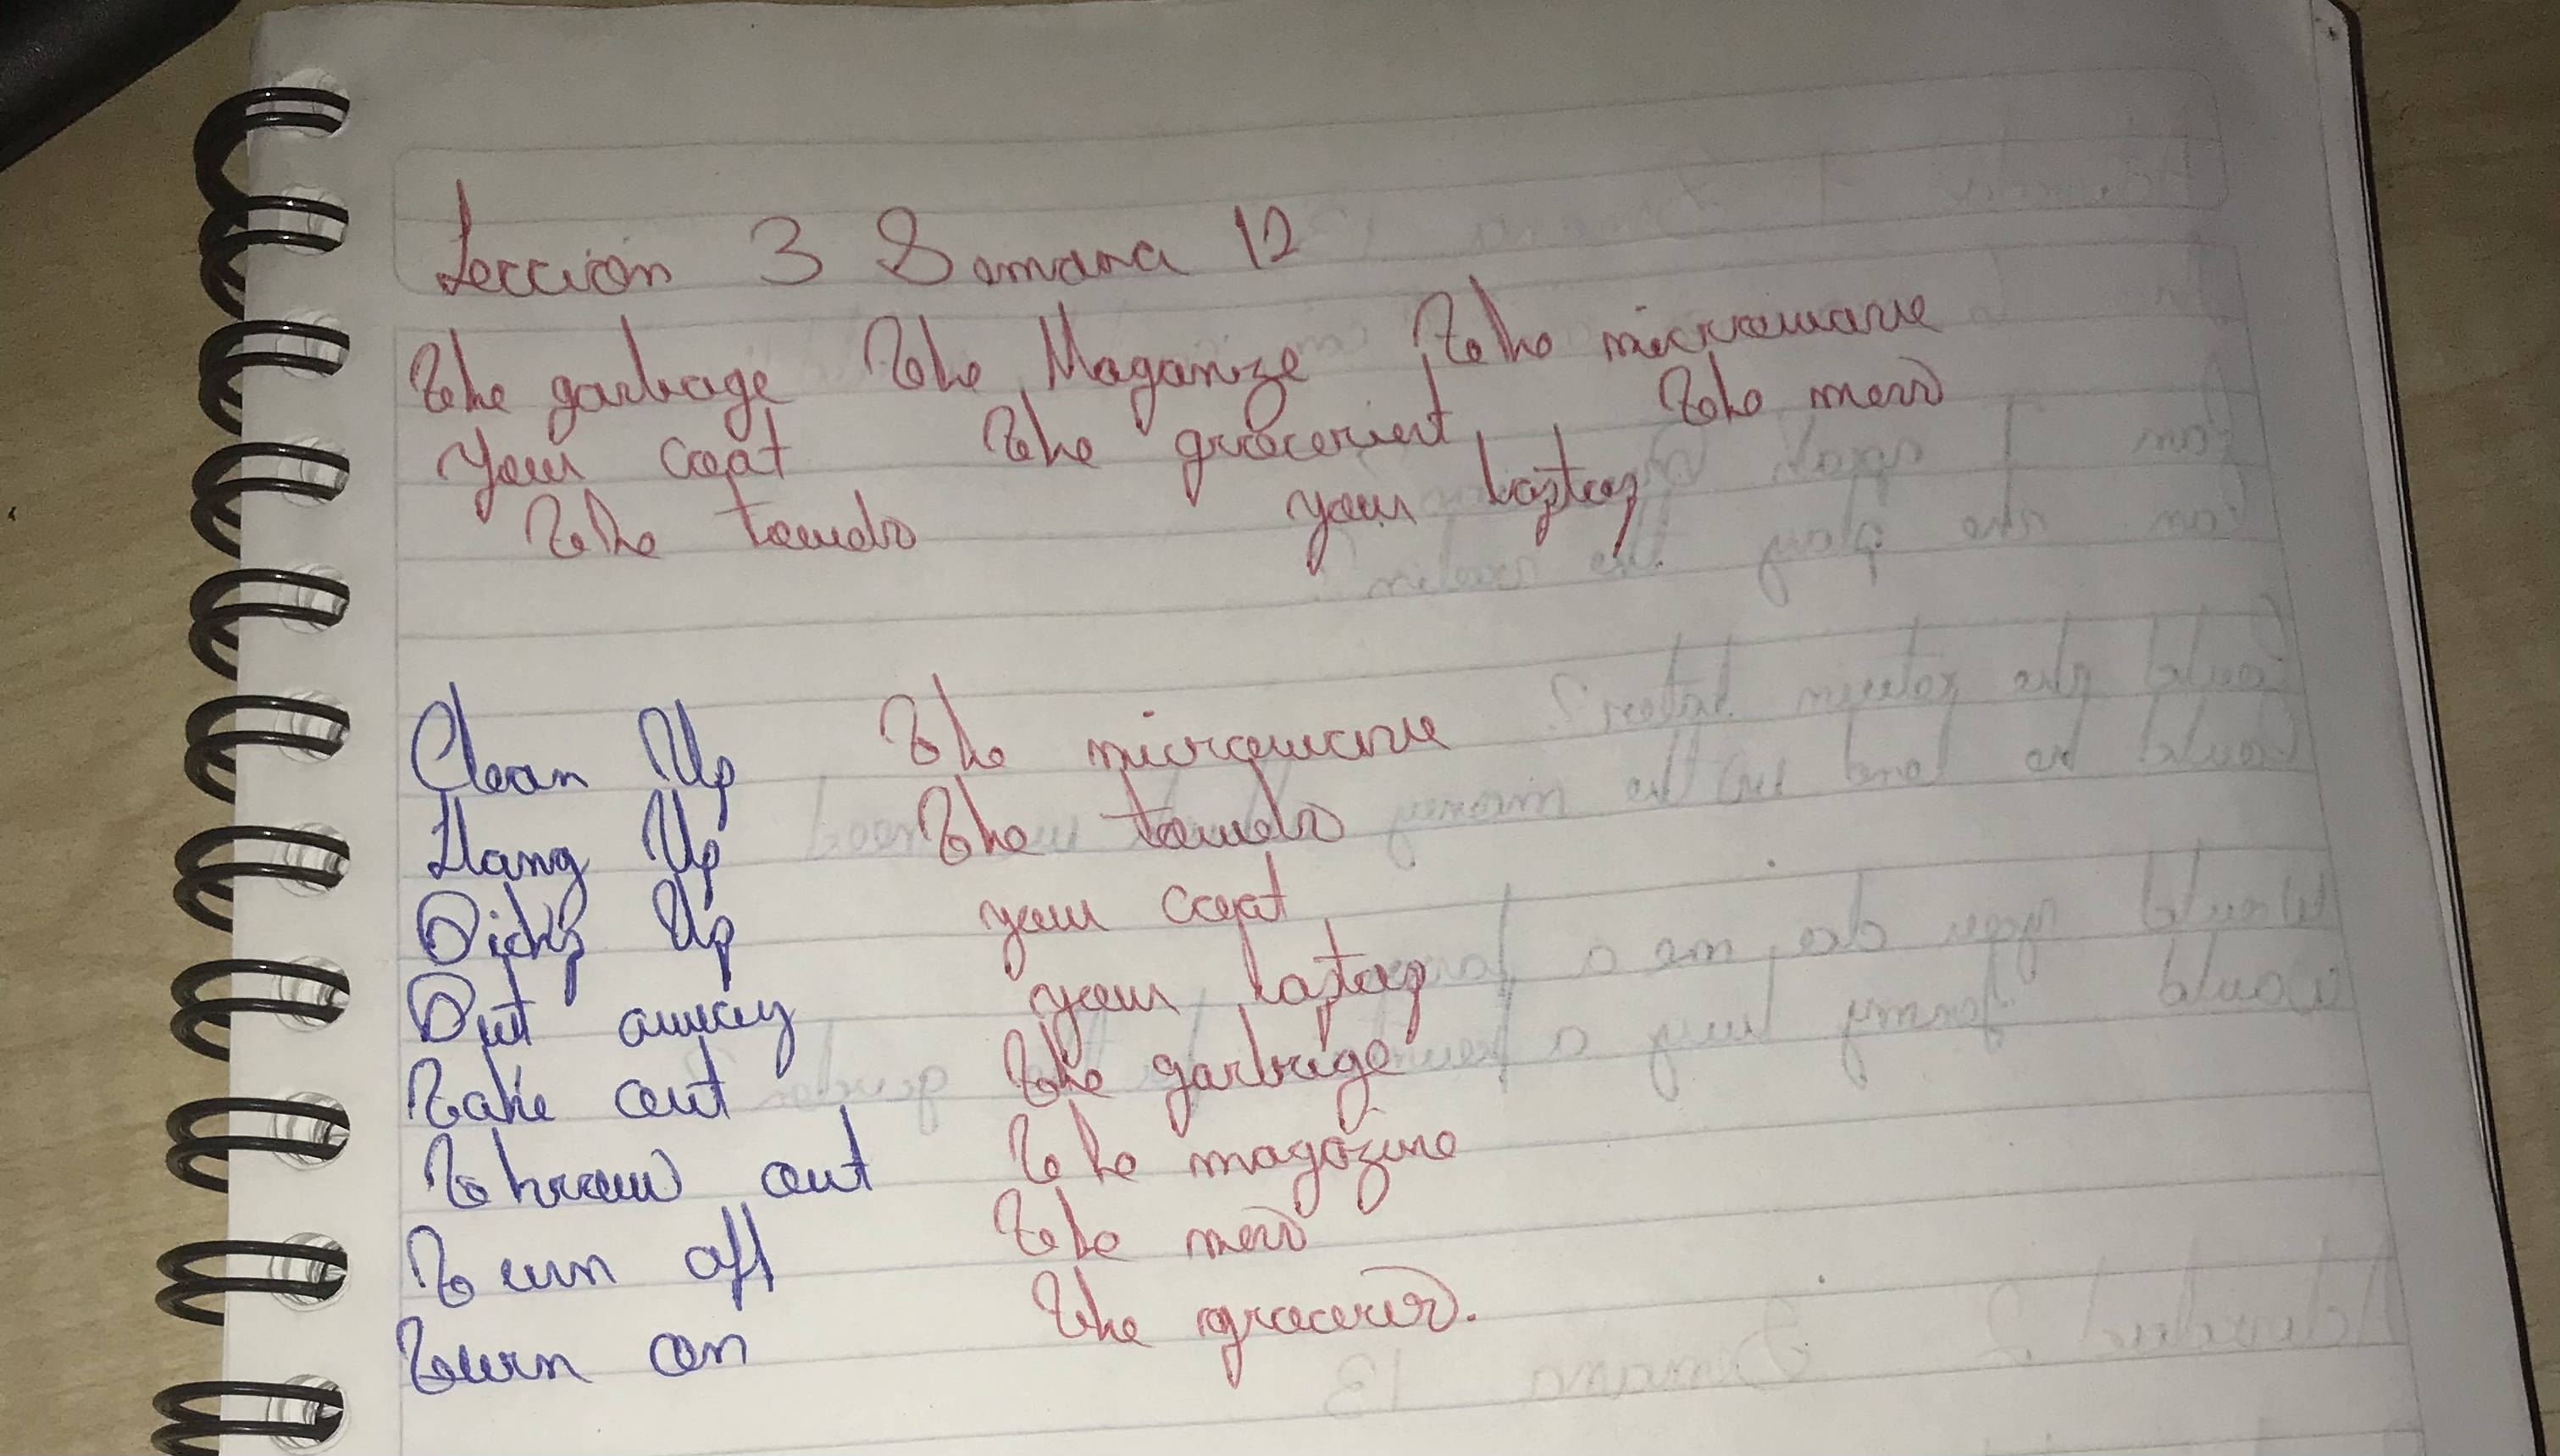 Leccion 3 Semana 12
The garbage The Maganize The microwave
your coat The groceriest The mess
The towels your laptop
Clean Up The microwave
Hang Up The towels
Pick Up your coat
Put away your laptop
Take out The garbage
Throw out The magazine
Turn off The mess
Turn on The groceries.